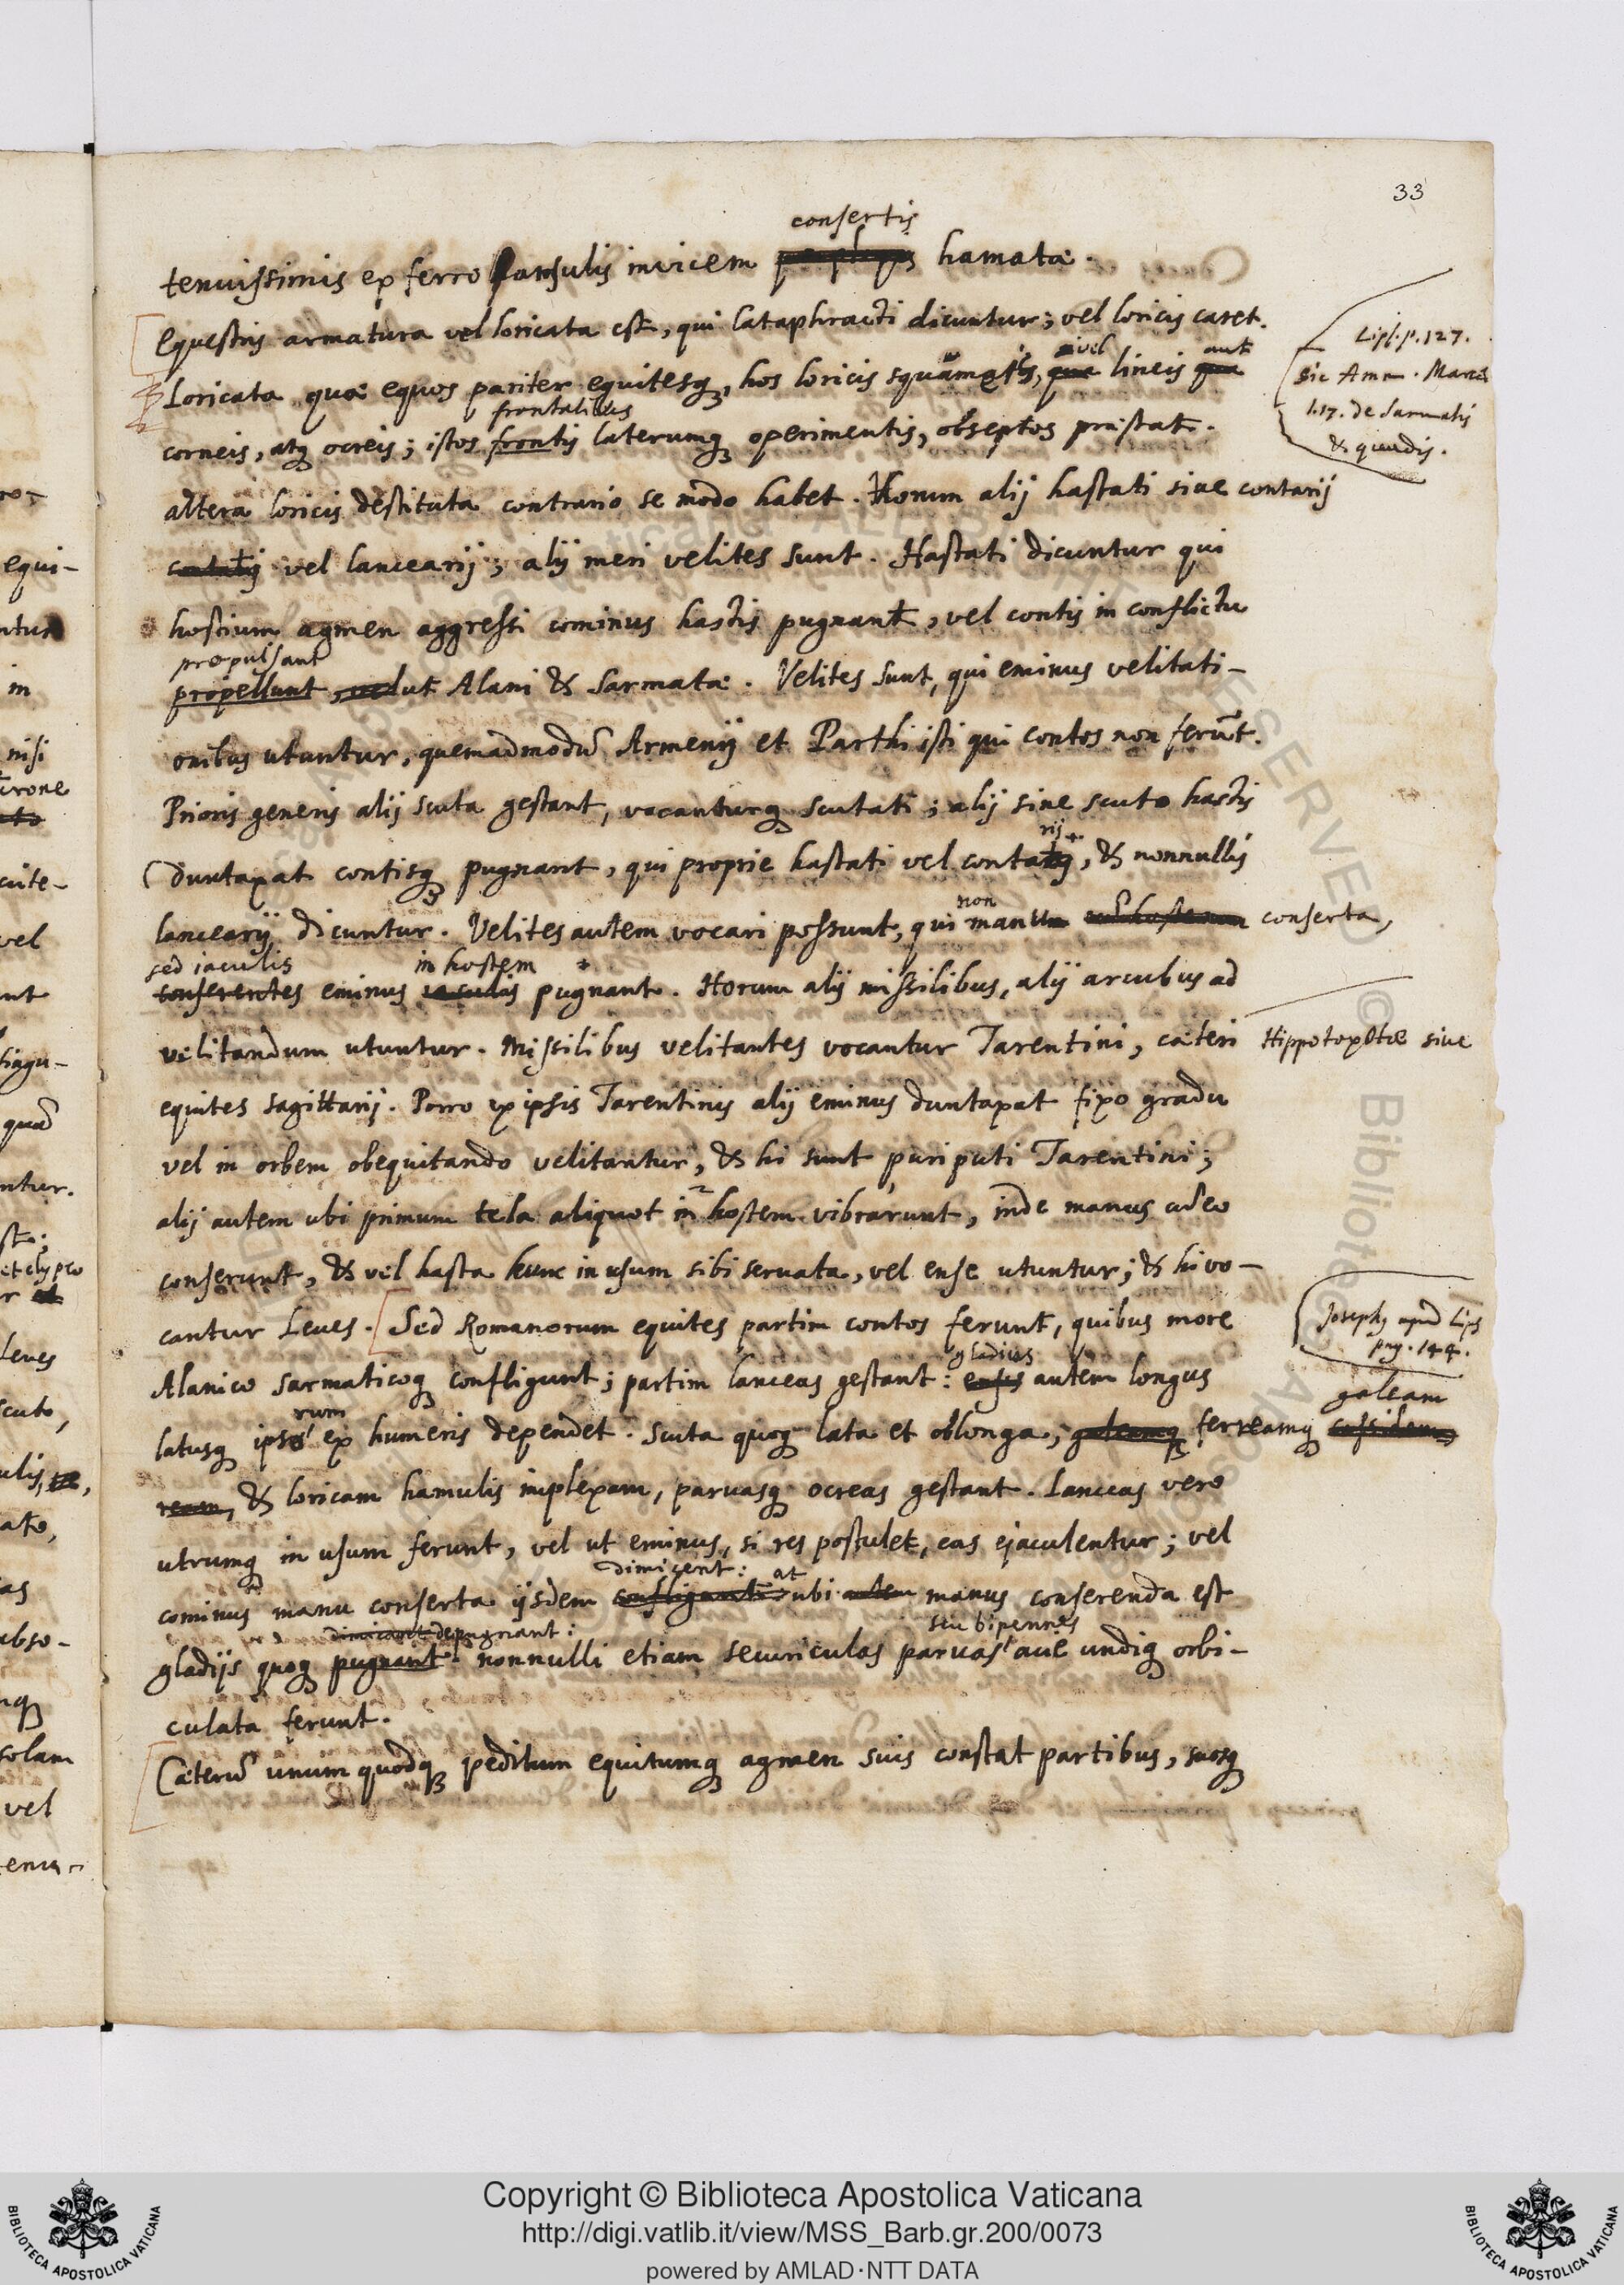 33
consertis
tenuissimis ex ferro ansulis invicem hamatæ.
Equestris armatura vel loricata est, qui Cataphracti dicuntur; vel loricis caret.
vel aut
Loricata quæ equos pariter equitesq, hos loricis squamatis, qua lineis qua
frontalibus
corneis, atq ocreis; istos frontis laterumq operimentis, obseptos præstat.
Lips. p. 127.
sic Amm. Marce
l. 17. de Sarmatis
& quadis.
altera loricis destituta contrario se modo habet. Horum alij hastati siue contarij
contatij vel lancearij; alij meri velites sunt. Hastati dicuntur qui
hostium agmen aggressi cominus hastis pugnant, vel contis in conflictu
propulsant
propellunt, velut Alani & Sarmatæ. Velites sunt, qui eminus velitati-
onibus utuntur, quemadmodũ Armenij et Parthi isti qui contos non ferũt.
Prioris generis alij scuta gestant, vocanturq scutati; alij sine scuto hastis
rij
duntaxat contisq pugnant, qui proprie hastati vel contatij, & nonnullis
non
lancearij dicuntur. Velites autem vocari possunt, qui manu conserta,
sed iaculis in hostem
conserentes eminus iaculis pugnant. Horum alij missilibus, alij arcubus ad
velitandum utuntur. Missilibus velitantes vocantur Tarentini, cæteri Hippotoxotæ siue
equites sagittarij. Porro ex ipsis Tarentinis alij eminus duntaxat fixo gradu
vel in orbem obequitando velitantur, & hi sunt puri puti Tarentini;
alij autem ubi primum tela aliquot in hostem vibrarunt, inde manus adeo
conserunt, & vel hasta hunc in usum sibi seruata, vel ense utuntur; & hi vo-
cantur Leues. Sed Romanorum equites partim contos ferunt, quibus more
Joseph9 apud Lips
pag. 144.
gladius
Alanico sarmaticoq confligunt; partim lanceas gestant: ensis autem longus
rum galeam
latusq ipso ex humeris dependet. Scuta quoq lata et oblonga, galeamq ferreamq cassidem
ream, & loricam hamulis implexam, paruasq ocreas gestant. Lanceas vero
utrumq in usum ferunt, vel ut eminus, si res postulet, eas ejaculentur; vel
dimicent: at
cominus manu conserta ijsdem confligant: ubi autem manus conserenda est
dimicant depugnant: seu bipennes
gladijs quoq pugnant. nonnulli etiam securiculas paruas undiq orbi-
culata ferunt.
Cæterũ unum quodq peditum equitumq agmen suis constat partibus, suosq
Copyright © Biblioteca Apostolica Vaticana
http://digi.vatlib.it/view/MSS_Barb.gr.200/0073
powered by AMLAD·NTT DATA
BIBLIOTECA APOSTOLICA VATICANA
BIBLIOTECA APOSTOLICA VATICANA